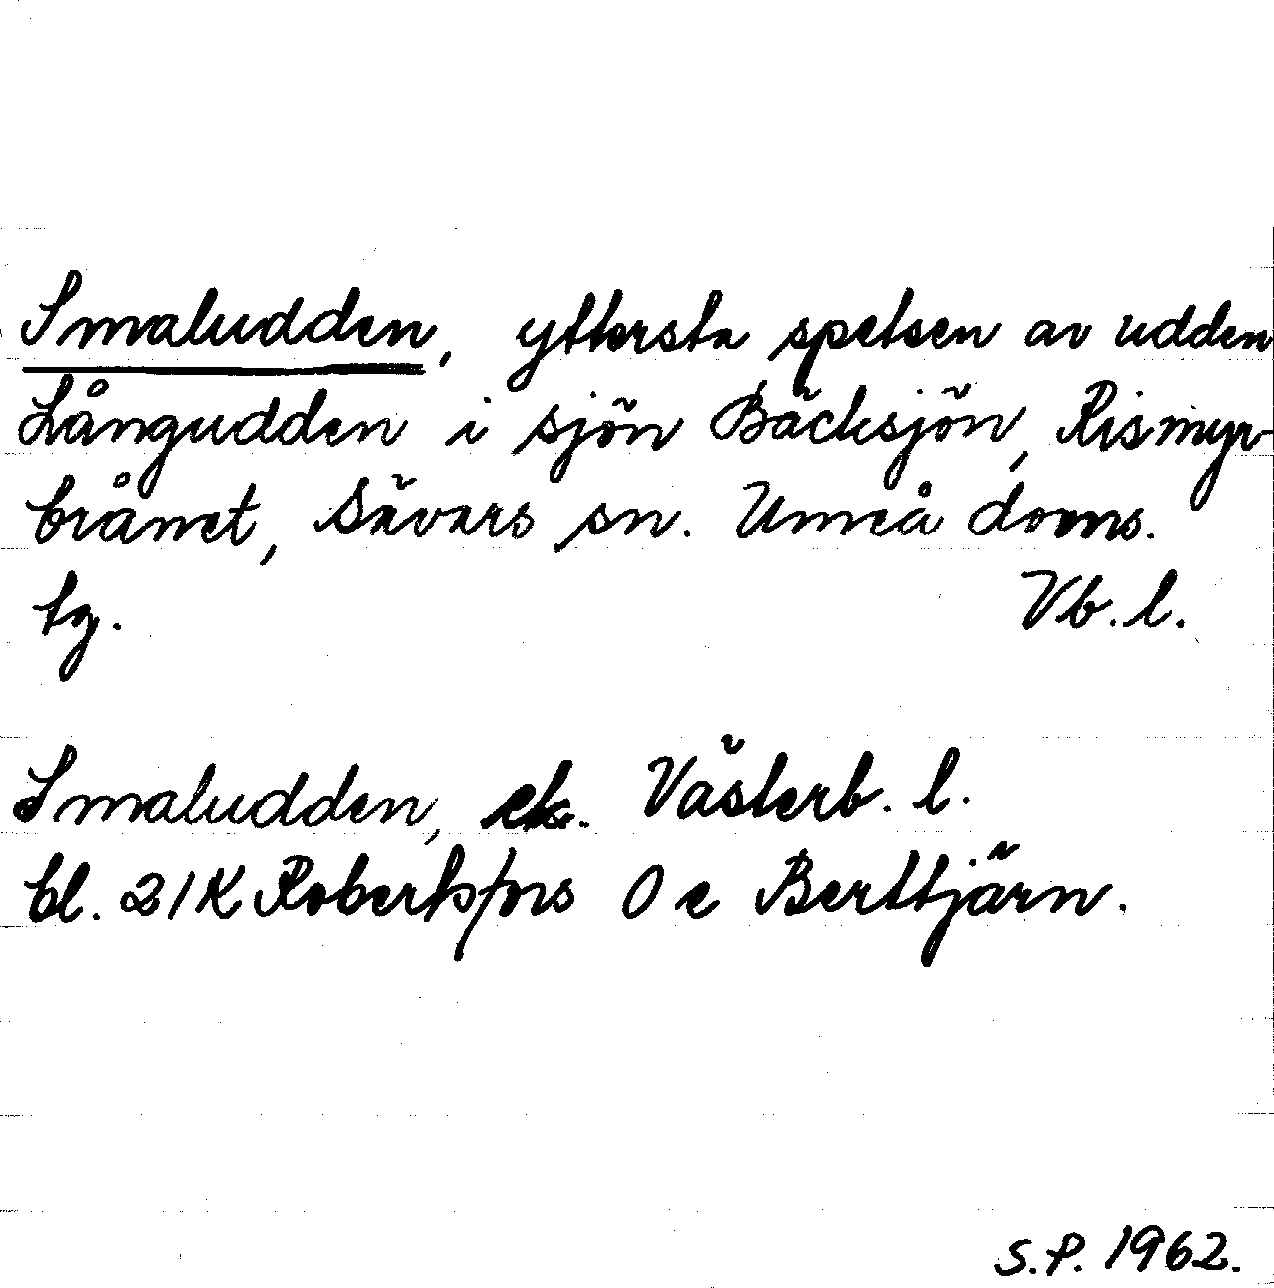 Smaludden, yttersta spetsen av udden
Långudden i sjön Bäcksjön, Rismyr-
brånet, Sävars sn. Umeå doms.
tg. Vb. l.
Smaludden, ek. Västerb. l.
bl. 21K Robertsfors 0 e Berttjärn.
S.P. 1962.